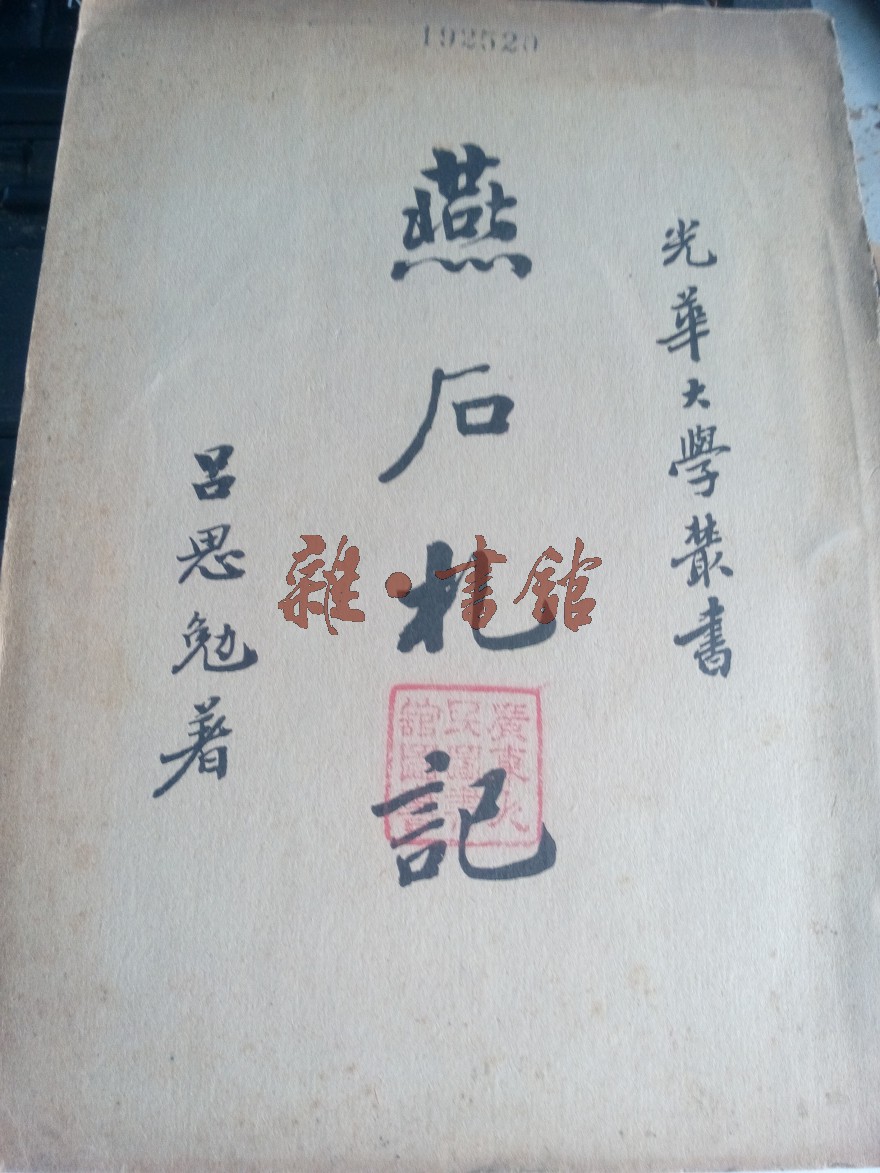 192520
光華大學叢書
燕石札記
呂思勉著
雜·書館
廣東人
民圖書
館圖書